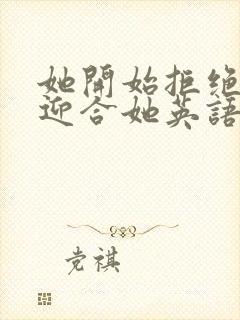 她開始拒绝
迎合她英語
党祺